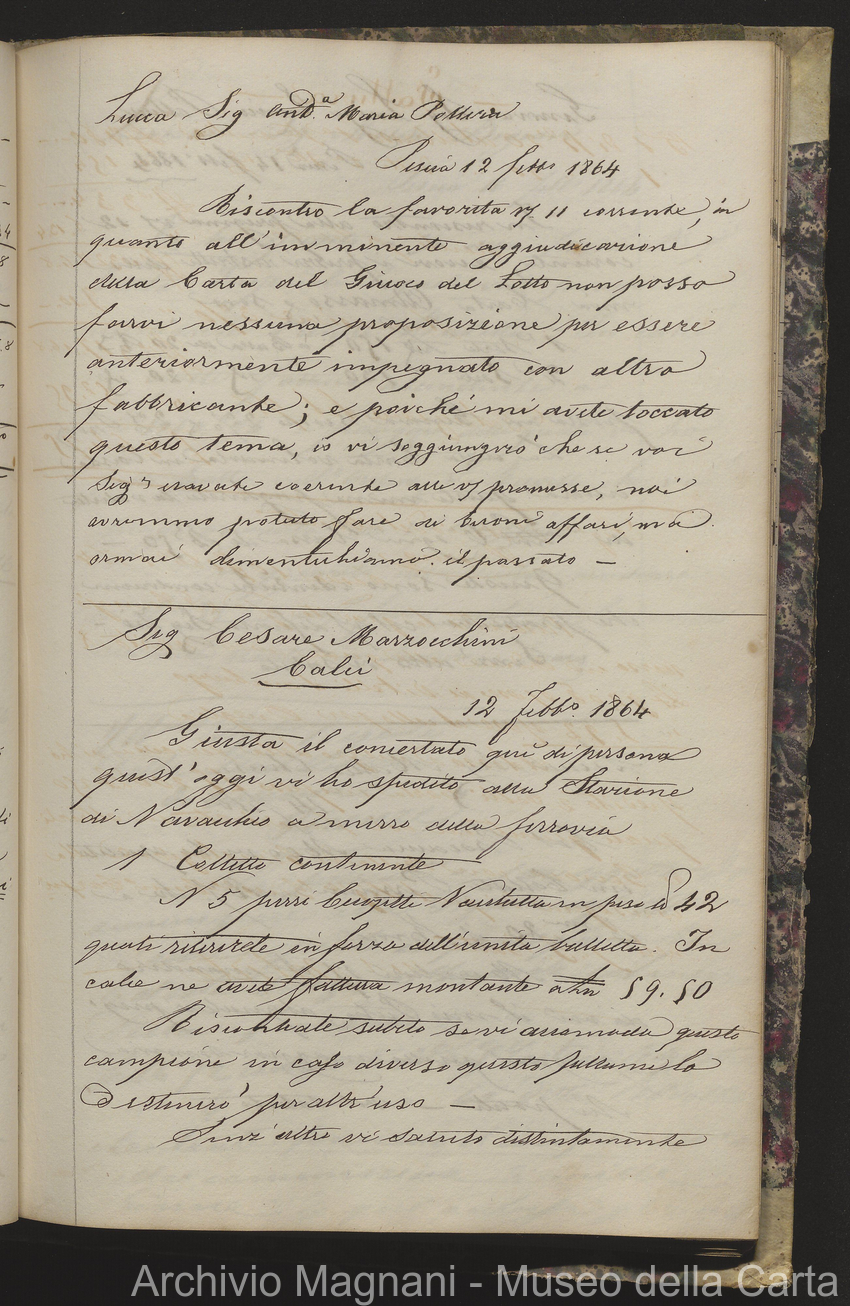 Lucca Sig And.ª Maria Pollera
Pescia 12 febb.º 1864
Riscontro la favorita Vs 11 corrente, in
quanto all'imminente aggiudicazione
della Carta del Giuoco del Lotto non posso
farvi nessuna proposizione per essere
anteriormente impegnato con altro
fabbricante; e poiché mi avete toccato
questo tema, io vi soggiungerò che se voi
Sig.r eravate coerente alle Vs promesse, noi
avremmo potuto fare di buoni affari, ma
ormai dimentichiamo il passato —
Sig Cesare Marzocchini
Calci
12 Febb.º 1864
Giusta il concertato quì di persona
quest'oggi vi ho spedito alla Stazione
di Navacchio a mezzo della ferrovia
1 Colletto contenente
N 5 pezzi in peso 42
quali ritirerete in forza dell'unita bulletta. In
calce ne avete fattura montante a Ln 59.50
Riscontrate subito se vi accomoda questo
campione in caso diverso questo lo
Destinerò per altr'uso —
Senz'altro vi saluto distintamente
Archivio Magnani - Museo della Carta